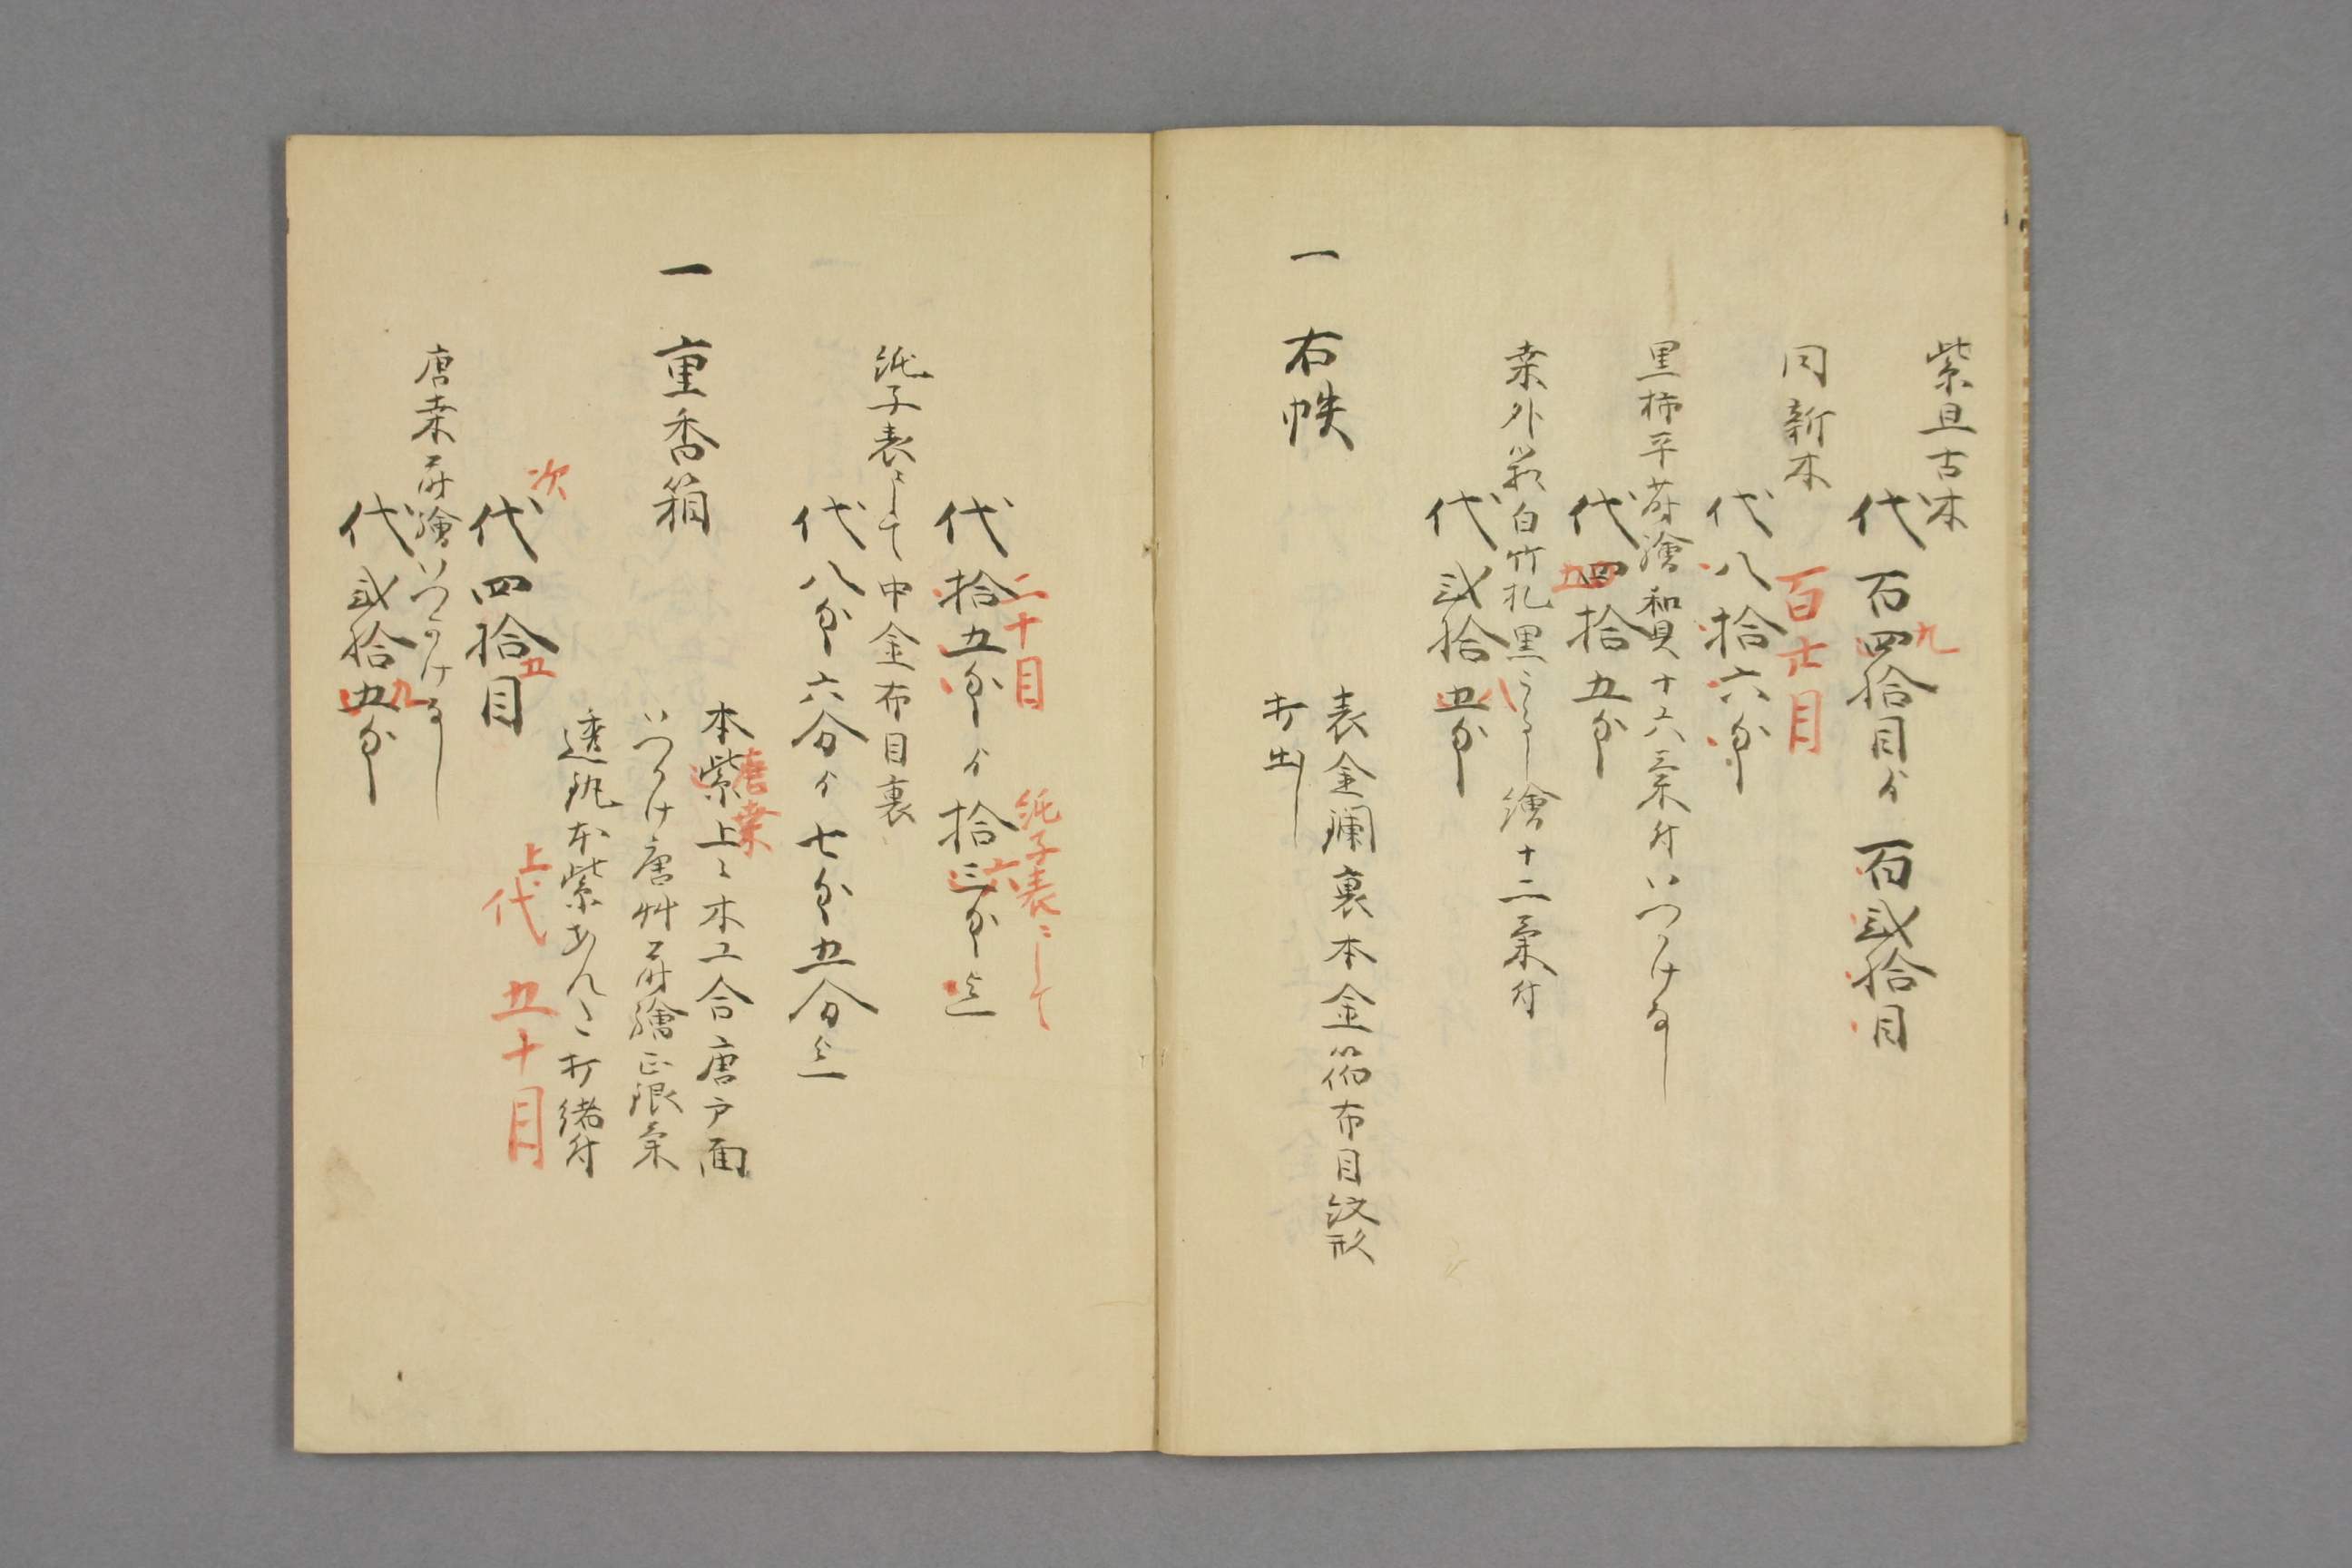 紫旦古木
代 百四拾目ゟ 百弐拾目
九
同新木
百廿目
代八拾六匁
黒柿平蒔繪和貝十六糸付いつかけなし
代四拾五匁
五
桑外箱白竹札黒 繪十二糸付
代弐拾五匁
八
一 右帙
表金襴裏本金箔布目紋形
打出し
純子表ニして
二十目
代拾五匁ゟ拾三匁迄
六
純子表ニして中金布目裏
代八匁六分ゟ七匁五分迄
一 重香箱
本紫上々木工合唐戸面
唐桒
いつかけ唐艸蒔繪正銀糸
透 本紫あんこ打緒付
上代 五十目
次
代四拾目
五
唐桒蒔繪いつかけなし
代弐拾五匁
九